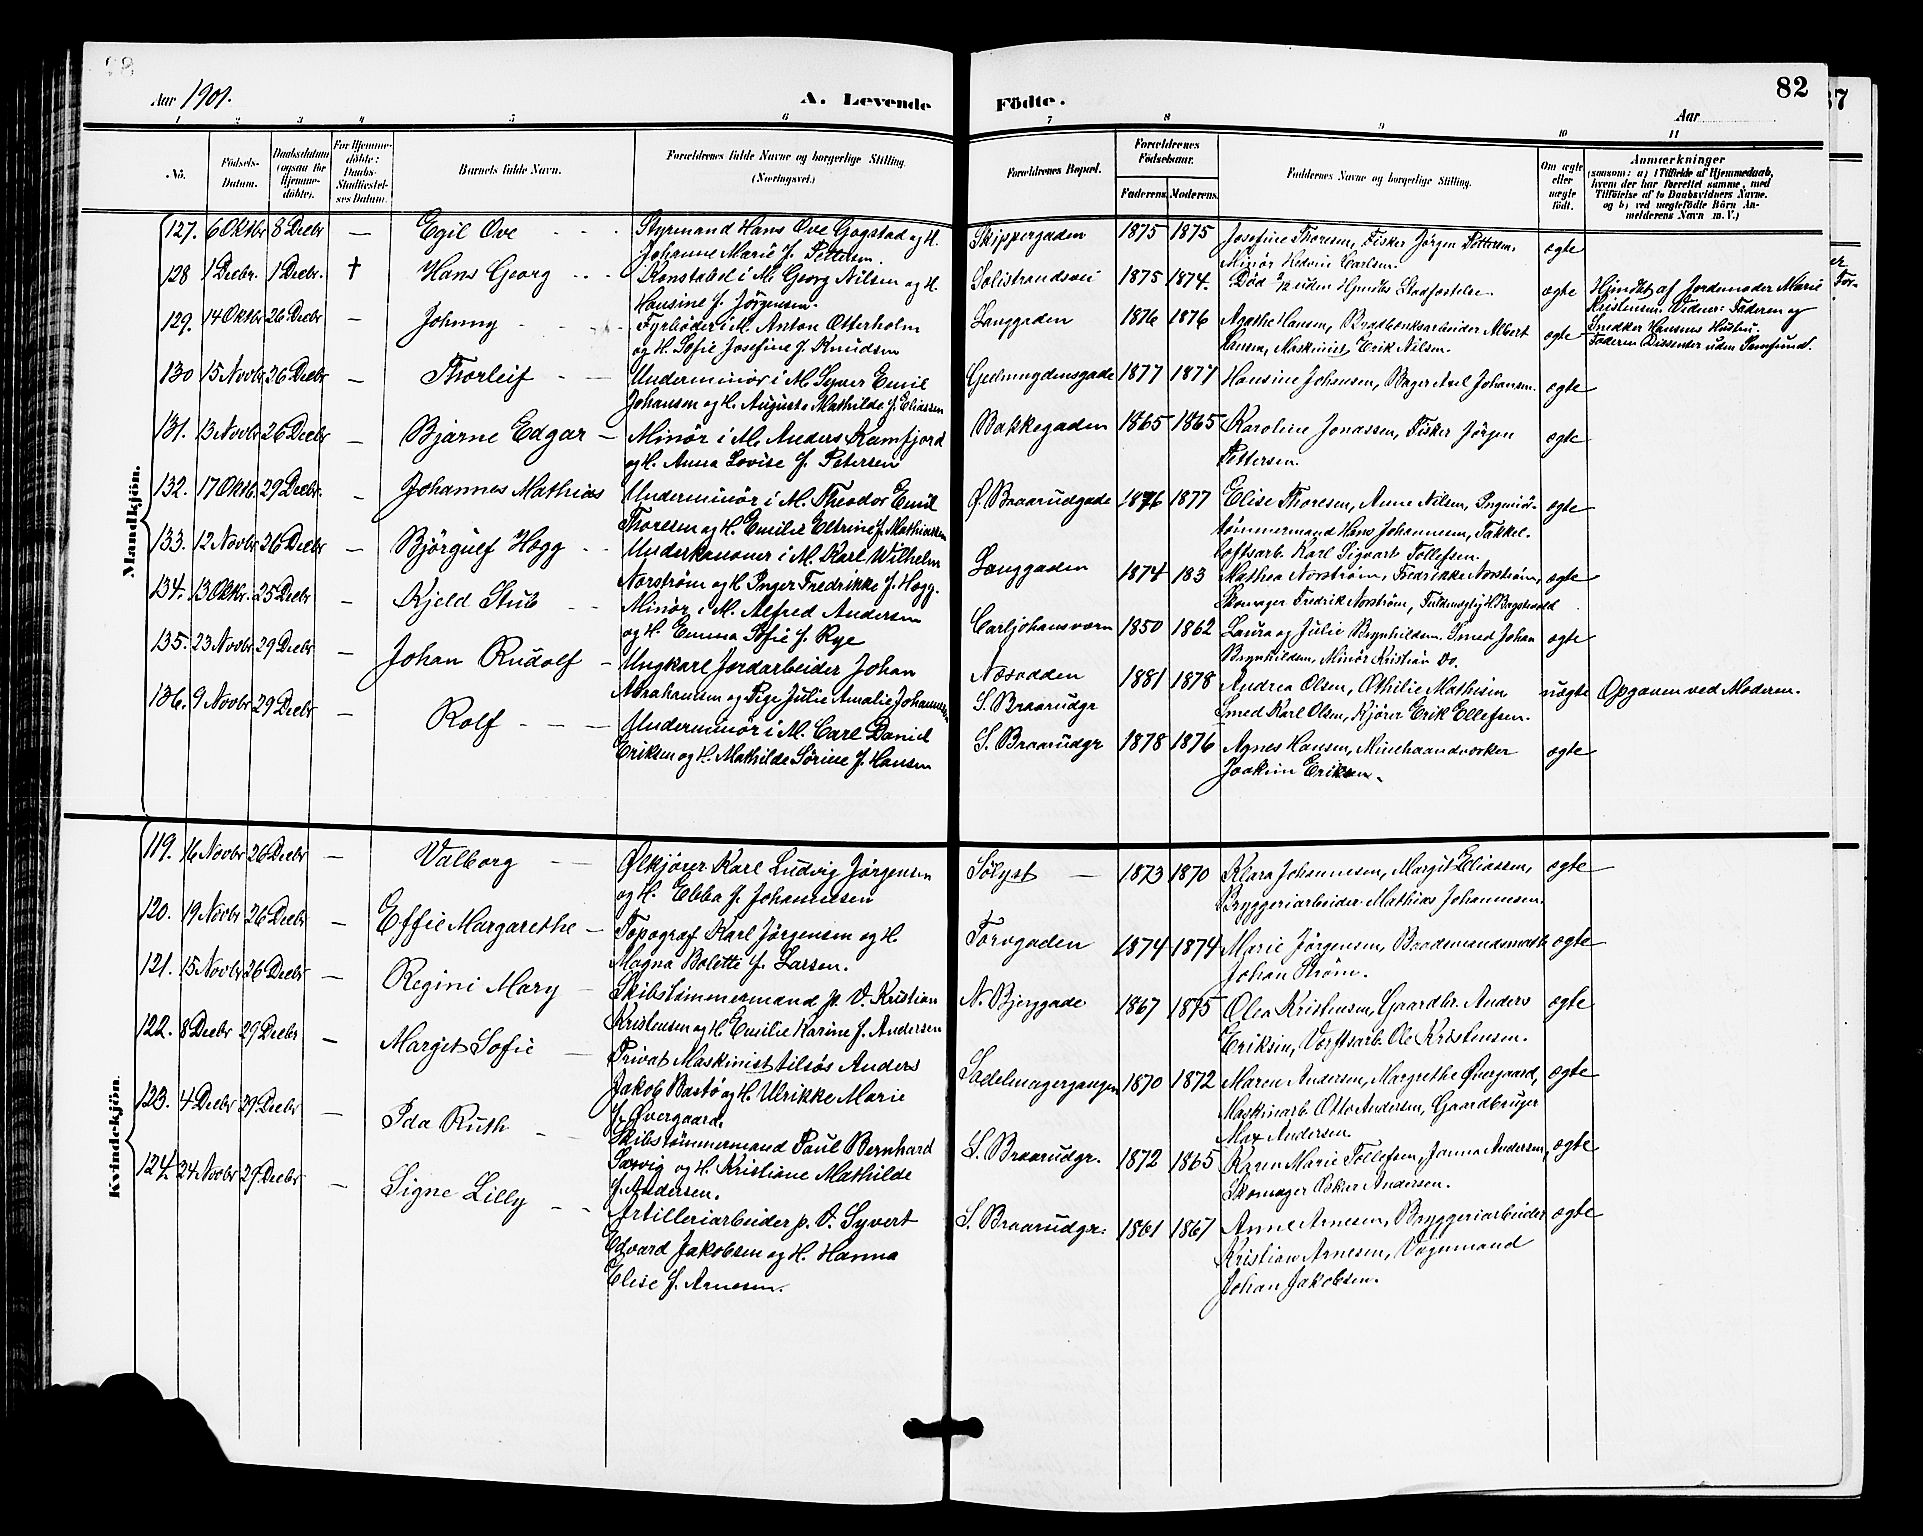 82
Aar 1901.
A. Levende Födte.
Aar
1 2 3 4 5 6 7 8 9 10 11
No.
Födsels-Datum.
Daabsdatum (ogsaa for Hjemmedöbte).
For Hjemmedöbte: Daabs-Stadfæstelses Datum.
Barnets fulde Navn.
Forældrenes fulde Navne og borgerlige Stilling. (Næringsvei.)
Forældrenes Bopæl.
Forældrenes Födselsaar.
Faderens. Moderens.
Faddernes Navne og borgerlige Stilling.
Om ægte eller uægte födt.
Anmærkninger
(saasom: a) i Tilfælde af Hjemmedaab, hvem der har forrettet samme, med Tilföielse af to Daabsvidners Navne. og b) ved uægtefödte Börn Anmelderens Navn m. V.)
Mandkjön.
127. 6 Oktbr 8 Decbr — Egil Ove Styrmand Hans Ove Gogstad og H. Skippergaden 1875 1875 Josefine Thoresen, Fisker Jörgen Pettersen. ægte
Johanne Marie f. Pettersen. Minör Hedvin Carlsen.
128 1 Decbr. 1 Decbr. † Hans Georg Konstabel i M. Georg Nilsen og H. Solistrandsvei 1875 1874. Död uden Hjmdbs Stadfæstelse. ægte Hjmdbt af Jordemoder Marie
Hansine f. Jörgensen. Kristensen. Vidner: Faderen og
Snedker Hansens Hustru.
129. 14 Oktbr 26 Decbr — Johnny Fyrböder i M. Anton Otterholm Langgaden 1876 1876 Agathe Hansen, Albert ægte Faderen Dissenter uden Samfund.
og H. Sofie Josefine f. Knudsen Hansen, Maskinist Erik Nilsen.
130 15 Novbr 26 Decbr — Thorleif Underminör i M. Syver Emil Geelmuydensgade 1877 1877 Hansine Johansen, Bager Axel Johansen. ægte
Johansen og H. Augusta Mathilde f. Eliassen
131. 13 Novbr 26 Decbr — Bjarne Edgar Minör i M. Anders Ramfjord Bakkegaden 1865 1865 Karoline Jonassen, Fisker Jörgen ægte
og H. Anna Lovise f. Petersen Pettersen.
132. 17 Oktb. 29 Decbr. — Johannes Mathias Underminör i M. Theodor Emil Ø. Braarudgade 1876 1877 Elise Thoresen, Anne Nilsen, ægte
Thoresen og H. Emilie Elbrine f. Mathiassen tömmermand Hans Johannesen, Takkel-
loftsarb. Karl Sigvart Tollefsen.
133. 12 Novbr 26 Decbr — Björgulf Hogg Underkanoner i M. Karl Wilhelm Langgaden 1874 183 Mathea Norström, Fredrikke Norström, ægte
Norström og H. Inger Fredrikke f. Hogg. Skomager Fredrik Norström,
134. 13 Oktbr. 25 Decbr — Kjeld Stub Minör i M. Alfred Andersen Carljohansværn 1850 1862 Laura og Julie Brynhildsen. Smed Johan ægte
og H. Emma Sofie f. Rye Brynhildsen, Minör Kristian Do.
135. 23 Novbr 29 Decbr — Johan Rudolf Ungkarl Jordarbeider Johan Næsodden 1881 1878 Andrea Olsen, Othilie Mathisen uægte Opgaven ved Moderen.
Abrahamsen og Pige Julie Amalie Johannesen S. Braarudgr Smed Karl Olsen, Kjörer Erik Ellefsen.
136. 9 Novbr 29 Decbr — Rolf Underminör i M. Carl Daniel S. Braarudgr 1878 1876 Agnes Hansen, Minehaandværker ægte
Eriksen og H. Mathilde Sörine f. Hansen Joakim Eriksen.
Kvindekjön.
119. 16 Novbr 26 Decbr — Valborg Ølkjörer Karl Ludvig Jörgensen Sölyst 1873 1870 Klara Johannesen, Margit Eliassen, ægte
og H. Ebba f. Johannesen Bryggeriarbeider Mathias Johannesen.
120. 19 Novbr 26 Decbr — Effie Margarethe Topograf Karl Jörgensen og H. Torvgaden 1874 1874 Marie Jörgensen, Baadsmandsmath ægte
Magna Bolette f. Larsen. Johan Ström.
121. 15 Novbr 26 Decbr — Regini Mary Skibstömmermand p. V. Kristian N. Bjerggade 1867 1875 Olea Kristensen, Gaardbr. Anders ægte
Kristensen og H. Emilie Karine f. Andersen Eriksen, Værftsarb. Ole Kristensen.
122. 8 Decbr 29 Decbr — Margit Sofie Privat Maskinist tilsös Anders Sadelmagergangen 1870 1872 Maren Andersen, Margrethe Øvergaard, ægte
Jakob Bastö og H. Ulrikke Marie Maskinarb. Otto Andersen, Gaardbruger
f. Øvergaard. Max Andersen.
123. 4 Decbr 29 Decbr — Ida Ruth Skibstömmermand Paul Bernhard S. Braarudgr. 1872 1865 Karen Marie Tollefsen, Janna Andersen, ægte
Sarvig og H. Kristiane Mathilde Skomager Oskar Andersen.
f. Andersen.
124. 24 Novbr 29 Decbr — Signe Lilly Artilleriarbeider p. V. Syvert S. Braarudgr. 1861 1867 Anne Arnesen, Bryggeriarbeider ægte
Edvard Jakobsen og H. Hanna Kristian Arnesen, Vognmand
Elise f. Arnesen. Johan Jakobsen.